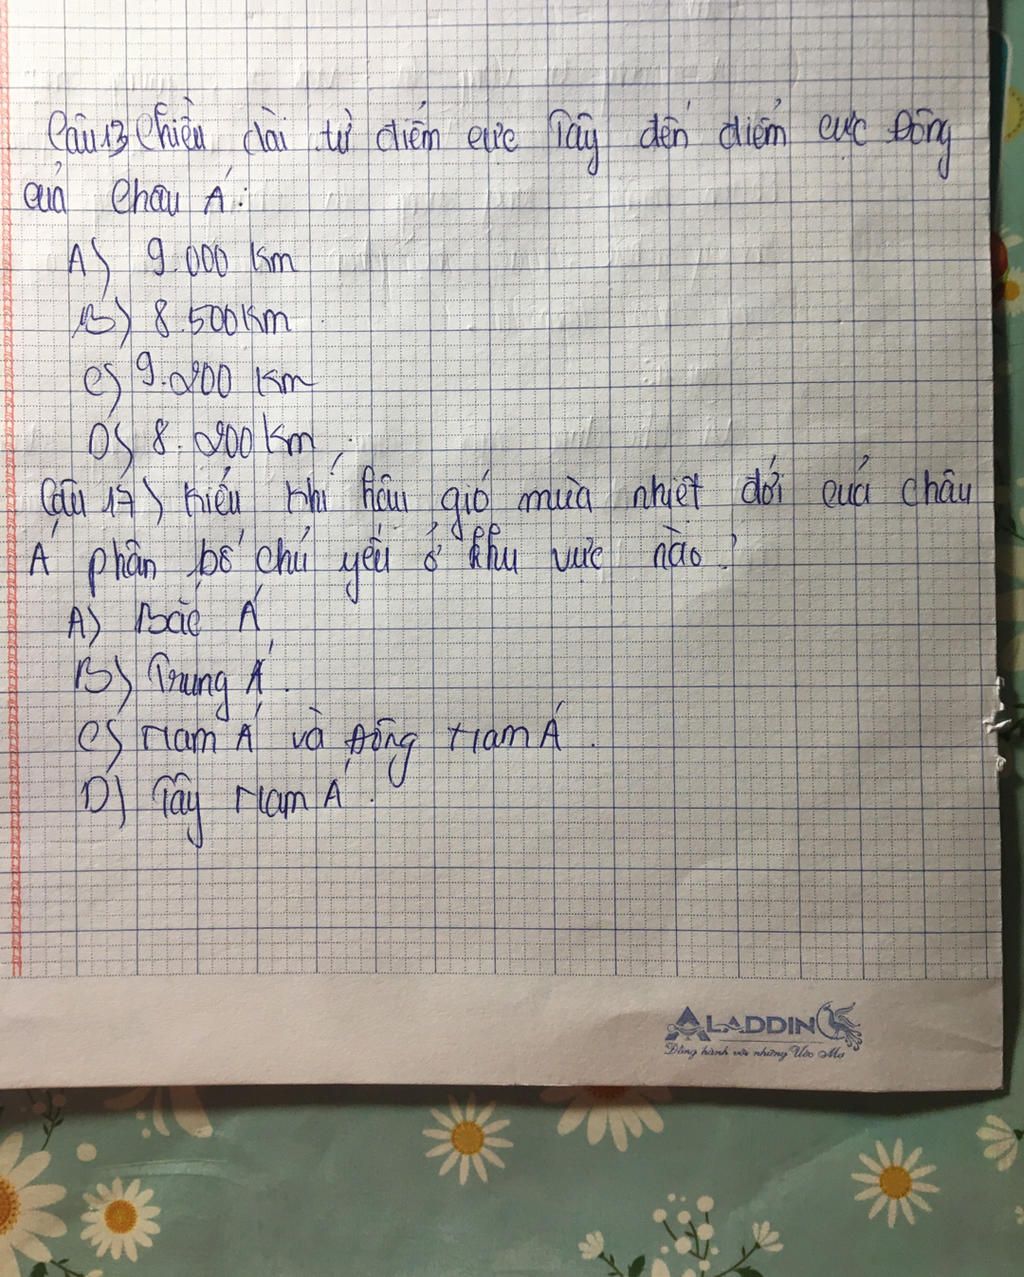 Câu 13 Chiều dài từ điểm cực Tây đến điểm cực Đông
của Châu Á:
A) 9.000 Km
B) 8.500 Km
C) 9.200 Km
D) 8.200 Km
Câu 17) Kiểu khí hậu gió mùa nhiệt đới của châu
Á phân bố chủ yếu ở khu vực nào?
A) Bắc Á
B) Trung Á.
C) Nam Á và Đông Nam Á.
D) Tây Nam Á.
ALADDIN
Đồng hành với những Ước Mơ